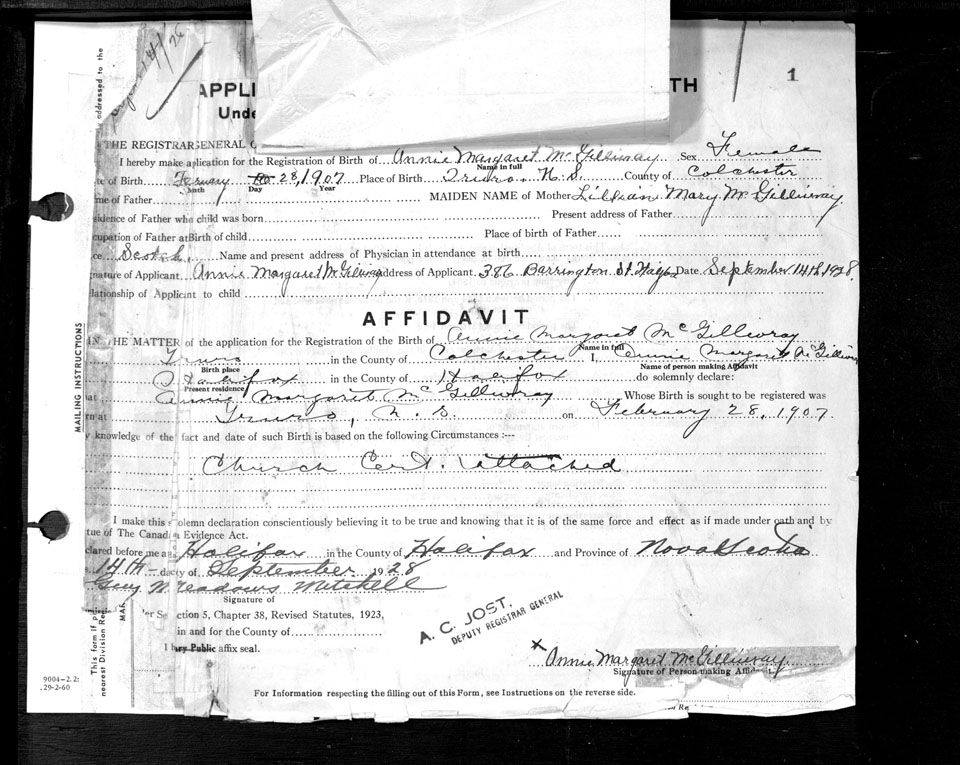 addressed to the
1
APPLI TH
Unde
THE REGISTRAR GENERAL
I hereby make aplication for the Registration of Birth of Annie Margaret McGillivray Sex Female
te of Birth Feruary 28, 1907 Place of Birth Truro N.S. County of Colchester
Month Day Year Name in full
me of Father MAIDEN NAME of Mother Lillian Mary McGillivray
sidence of Father when child was born Present address of Father
cupation of Father at Birth of child Place of birth of Father
ce Scotch. Name and present address of Physician in attendance at birth
nature of Applicant Annie Margaret McGilivray address of Applicant 386 Barrington St. Hfx Date September 14th 1928.
lationship of Applicant to child
AFFIDAVIT
IN THE MATTER of the application for the Registration of the Birth of Annie Margaret McGillivray
Name in full
Truro in the County of Colchester I, Annie Margaret McGillivray
Birth place Name of person making Affidavit
Halifax in the County of Halifax do solemnly declare:
Present residence
hat Annie Margaret McGillivray Whose Birth is sought to be registered was
rn at Truro, N.S. on February 28, 1907.
y knowledge of the fact and date of such Birth is based on the following Circumstances :---
Church Cert. attached
I make this solemn declaration conscientiously believing it to be true and knowing that it is of the same force and effect as if made under oath and by
tue of The Canada Evidence Act.
clared before me at Halifax in the County of Halifax and Province of Nova Scotia
14th day of September 1928
Guy Meadows Mitchell
Signature of
er Section 5, Chapter 38, Revised Statutes, 1923,
in and for the County of
ary Public affix seal.
A. C. JOST,
DEPUTY REGISTRAR GENERAL
x Annie Margaret McGillivray
Signature of Person making Affidavit
For Information respecting the filling out of this Form, see Instructions on the reverse side.
MAILING INSTRUCTIONS
This form if p
nearest Division Reg
9004-2.2:
29-2-60